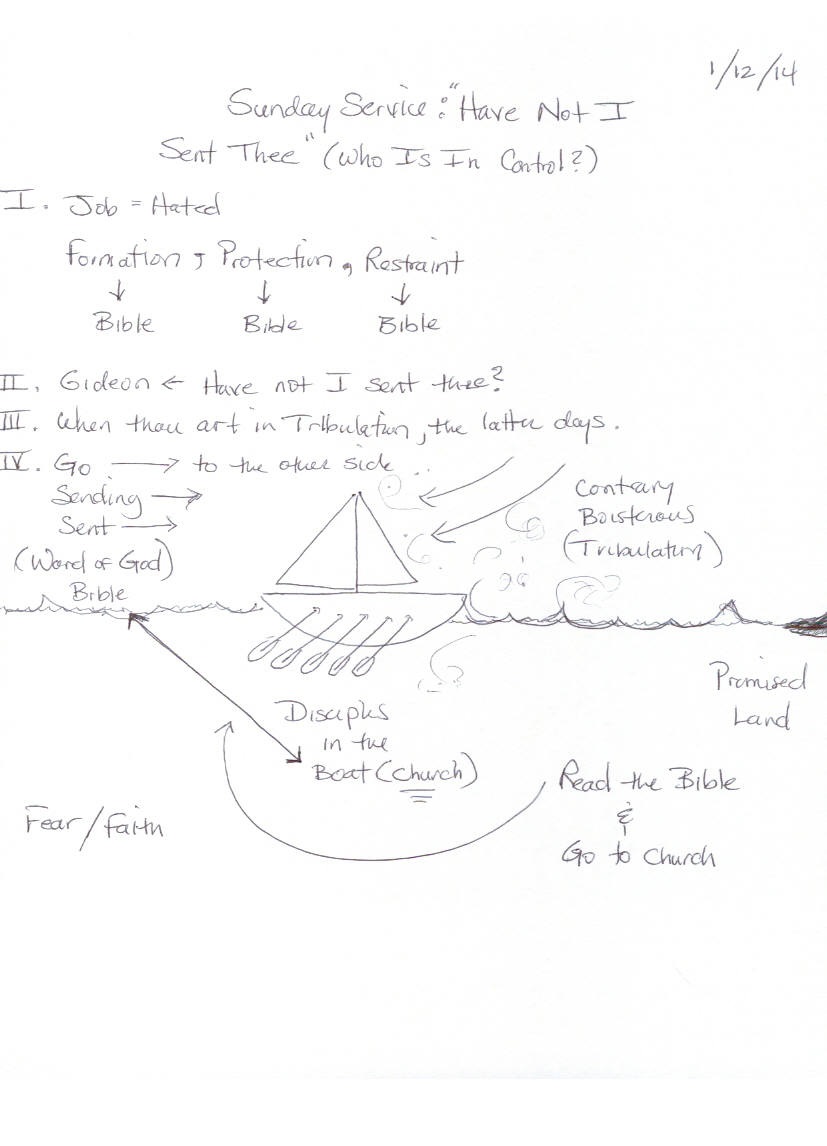 1/12/14
Sunday Service: "Have Not I
Sent Thee" (Who Is In Control?)
I. Job = Hated
Formation, Protection, Restraint
↓ ↓ ↓
Bible Bible Bible
II. Gideon ← Have not I sent thee?
III. When thou art in Tribulation, the latter days.
IV. Go → to the other side
Sending →
Sent →
(Word of God)
Bible
Contrary
Boisterous
(Tribulation)
Promised
Land
Disciples
in the
Boat (Church)
Read the Bible
&
Go to Church
Fear/Faith